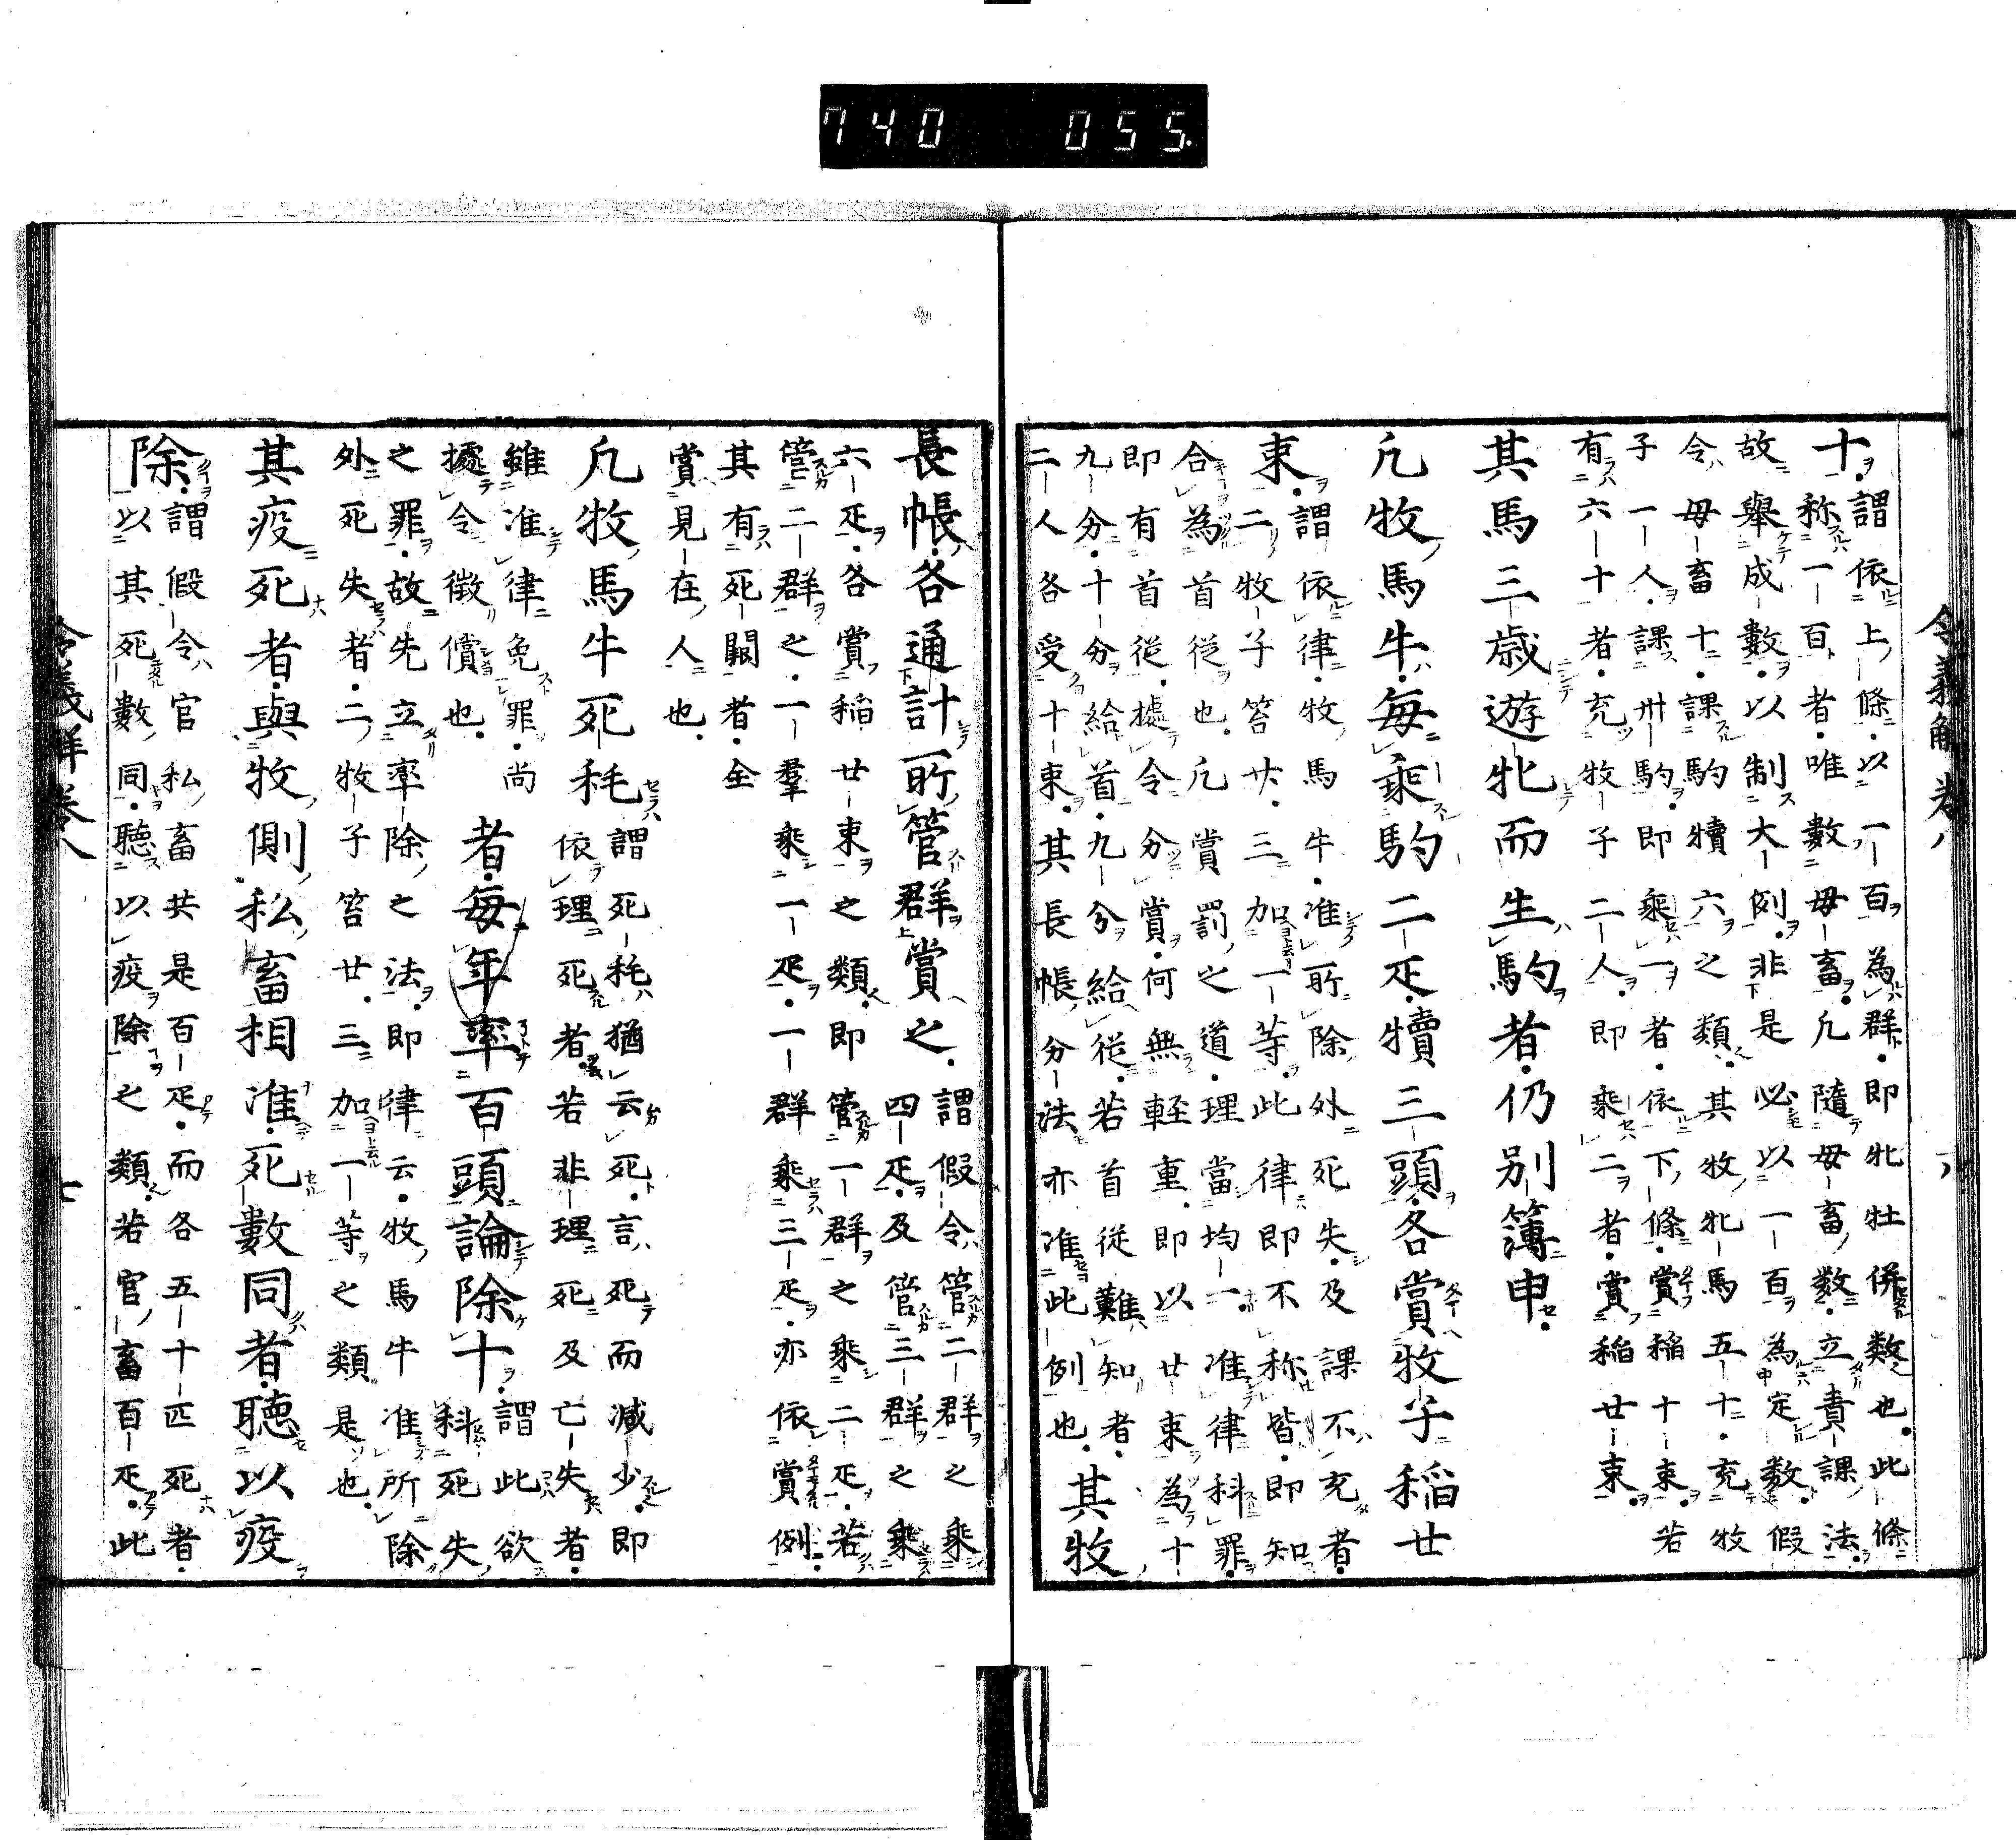 740 055.
令義解卷八 六
十謂依上條以一百為群即牝牡併数也此條
称一百者唯數毋畜凢隨毋畜数立責課法
故舉成數以制大例非是必以一百為定数假
令毋畜十課駒犢六之類其牧牝馬五十充牧
子一人課卅駒即乘一者依下條賞稲十束若
有六十者充牧子二人即乘二者賞稲廿束
其馬三歳遊牝而生駒者仍別簿申
凢牧馬牛毎乘駒二疋犢三頭各賞牧子稲廿
束謂依律牧馬牛准所除外死失及課不充者
二牧子笞廿三加一等此律即不称皆即知
合為首從也凢賞罰之道理當均一准律科罪
即有首從據令分賞何無軽重即以廿束為十
九分十分給首九分給從若首従難知者
二人各受十束其長帳分法亦准此例也其牧
長帳各通計所管群賞之謂假令管二群之乘
四疋及管三群之乘
六疋各賞稲廿束之類即管一群之乘二疋若
管二群之一羣乘一疋一群乘三疋亦依賞例
其有死闕者全
賞見在人也
凢牧馬牛死耗謂死耗猶云死言死而减少即
依理死者若非理死及亡失者
雖准律免罪尚
據令徴償也者毎年率百頭論除十謂此欲
科死失
之罪故先立率除之法即律云牧馬牛准所除
外死失者二牧子笞廿三加一等之類是也
其疫死者與牧側私畜相准死數同者聴以疫
除謂假令官私畜共是百疋而各五十匹死者
以其死數同聴以疫除之類若官畜百疋此
令義解卷八 七